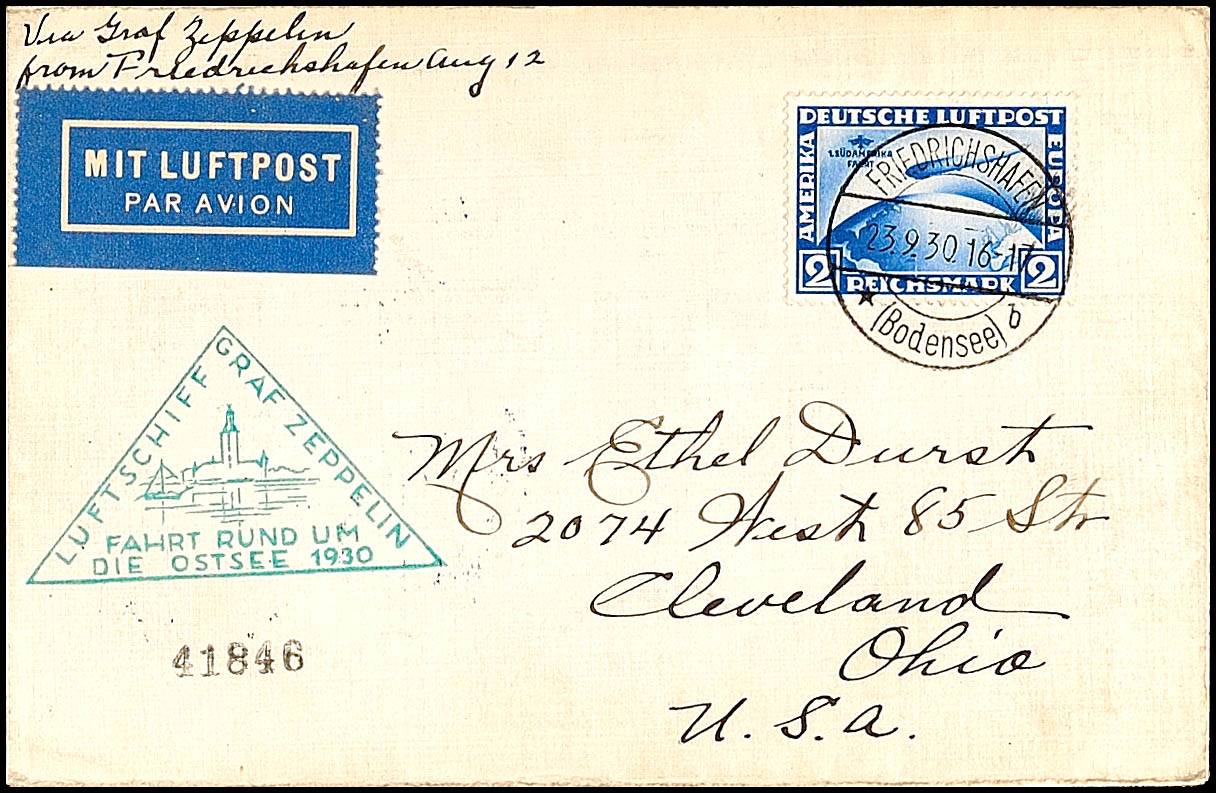 Via Graf Zeppelin
from Friedrichshafen Aug 12
MIT LUFTPOST
PAR AVION
DEUTSCHE LUFTPOST
AMERIKA
EUROPA
1. SÜDAMERIKA
FAHRT
2 REICHSMARK 2
FRIEDRICHSHAFEN
23.9.30. 16-17
(Bodensee) b
LUFTSCHIFF GRAF ZEPPELIN
FAHRT RUND UM
DIE OSTSEE 1930
Mrs Ethel Durst
2074 West 85 Str
Cleveland
Ohio
U.S.A.
41846